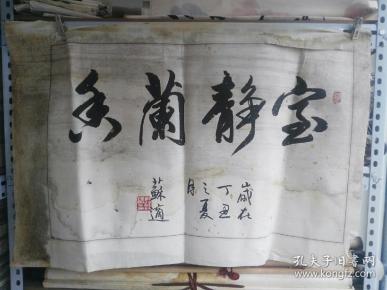 室静蘭香
歲在
丁丑
之夏
月
蘇適
孔夫子旧书网